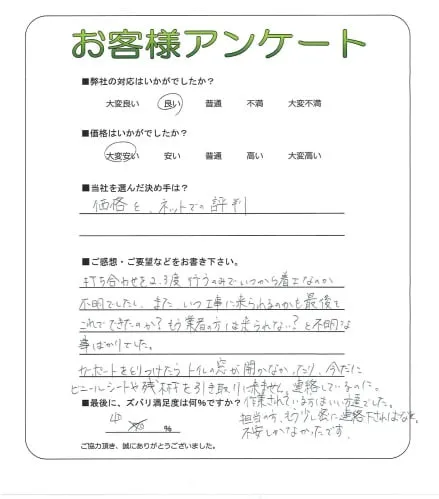 お客様アンケート
■弊社の対応はいかがでしたか?
大変良い 良い 普通 不満 大変不満
■価格はいかがでしたか?
大変安い 安い 普通 高い 大変高い
■当社を選んだ決め手は?
価格と、ネットでの評判
■ご感想・ご要望などをお書き下さい。
打ち合わせを2.3度 行うのみでいつから着工なのか
不明でしたし、また いつ工事に来られるのかも最後も
これでできたのか?もう業者の方は来られない?と不明な
事ばかりでした。
カーポートをとりつけたらトイレの窓が開かなかったり、今だに
ビニールシートや残材を引き取りに来ません。連絡しているのに。
■最後に、ズバリ満足度は何%ですか?
作業されている方はいい方達でした。
担当の方、もう少し密に連絡下されはなと。
不安しかなかったです。
40 %
ご協力頂き、誠にありがとうございました。